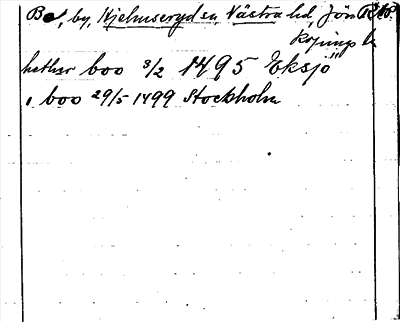 Bo, by, Hjelmseryd sn, Västra hd, Jön
köpings l
hether boo 3/2 1495 Eksjö
i boo 29/5 1499 Stockholm